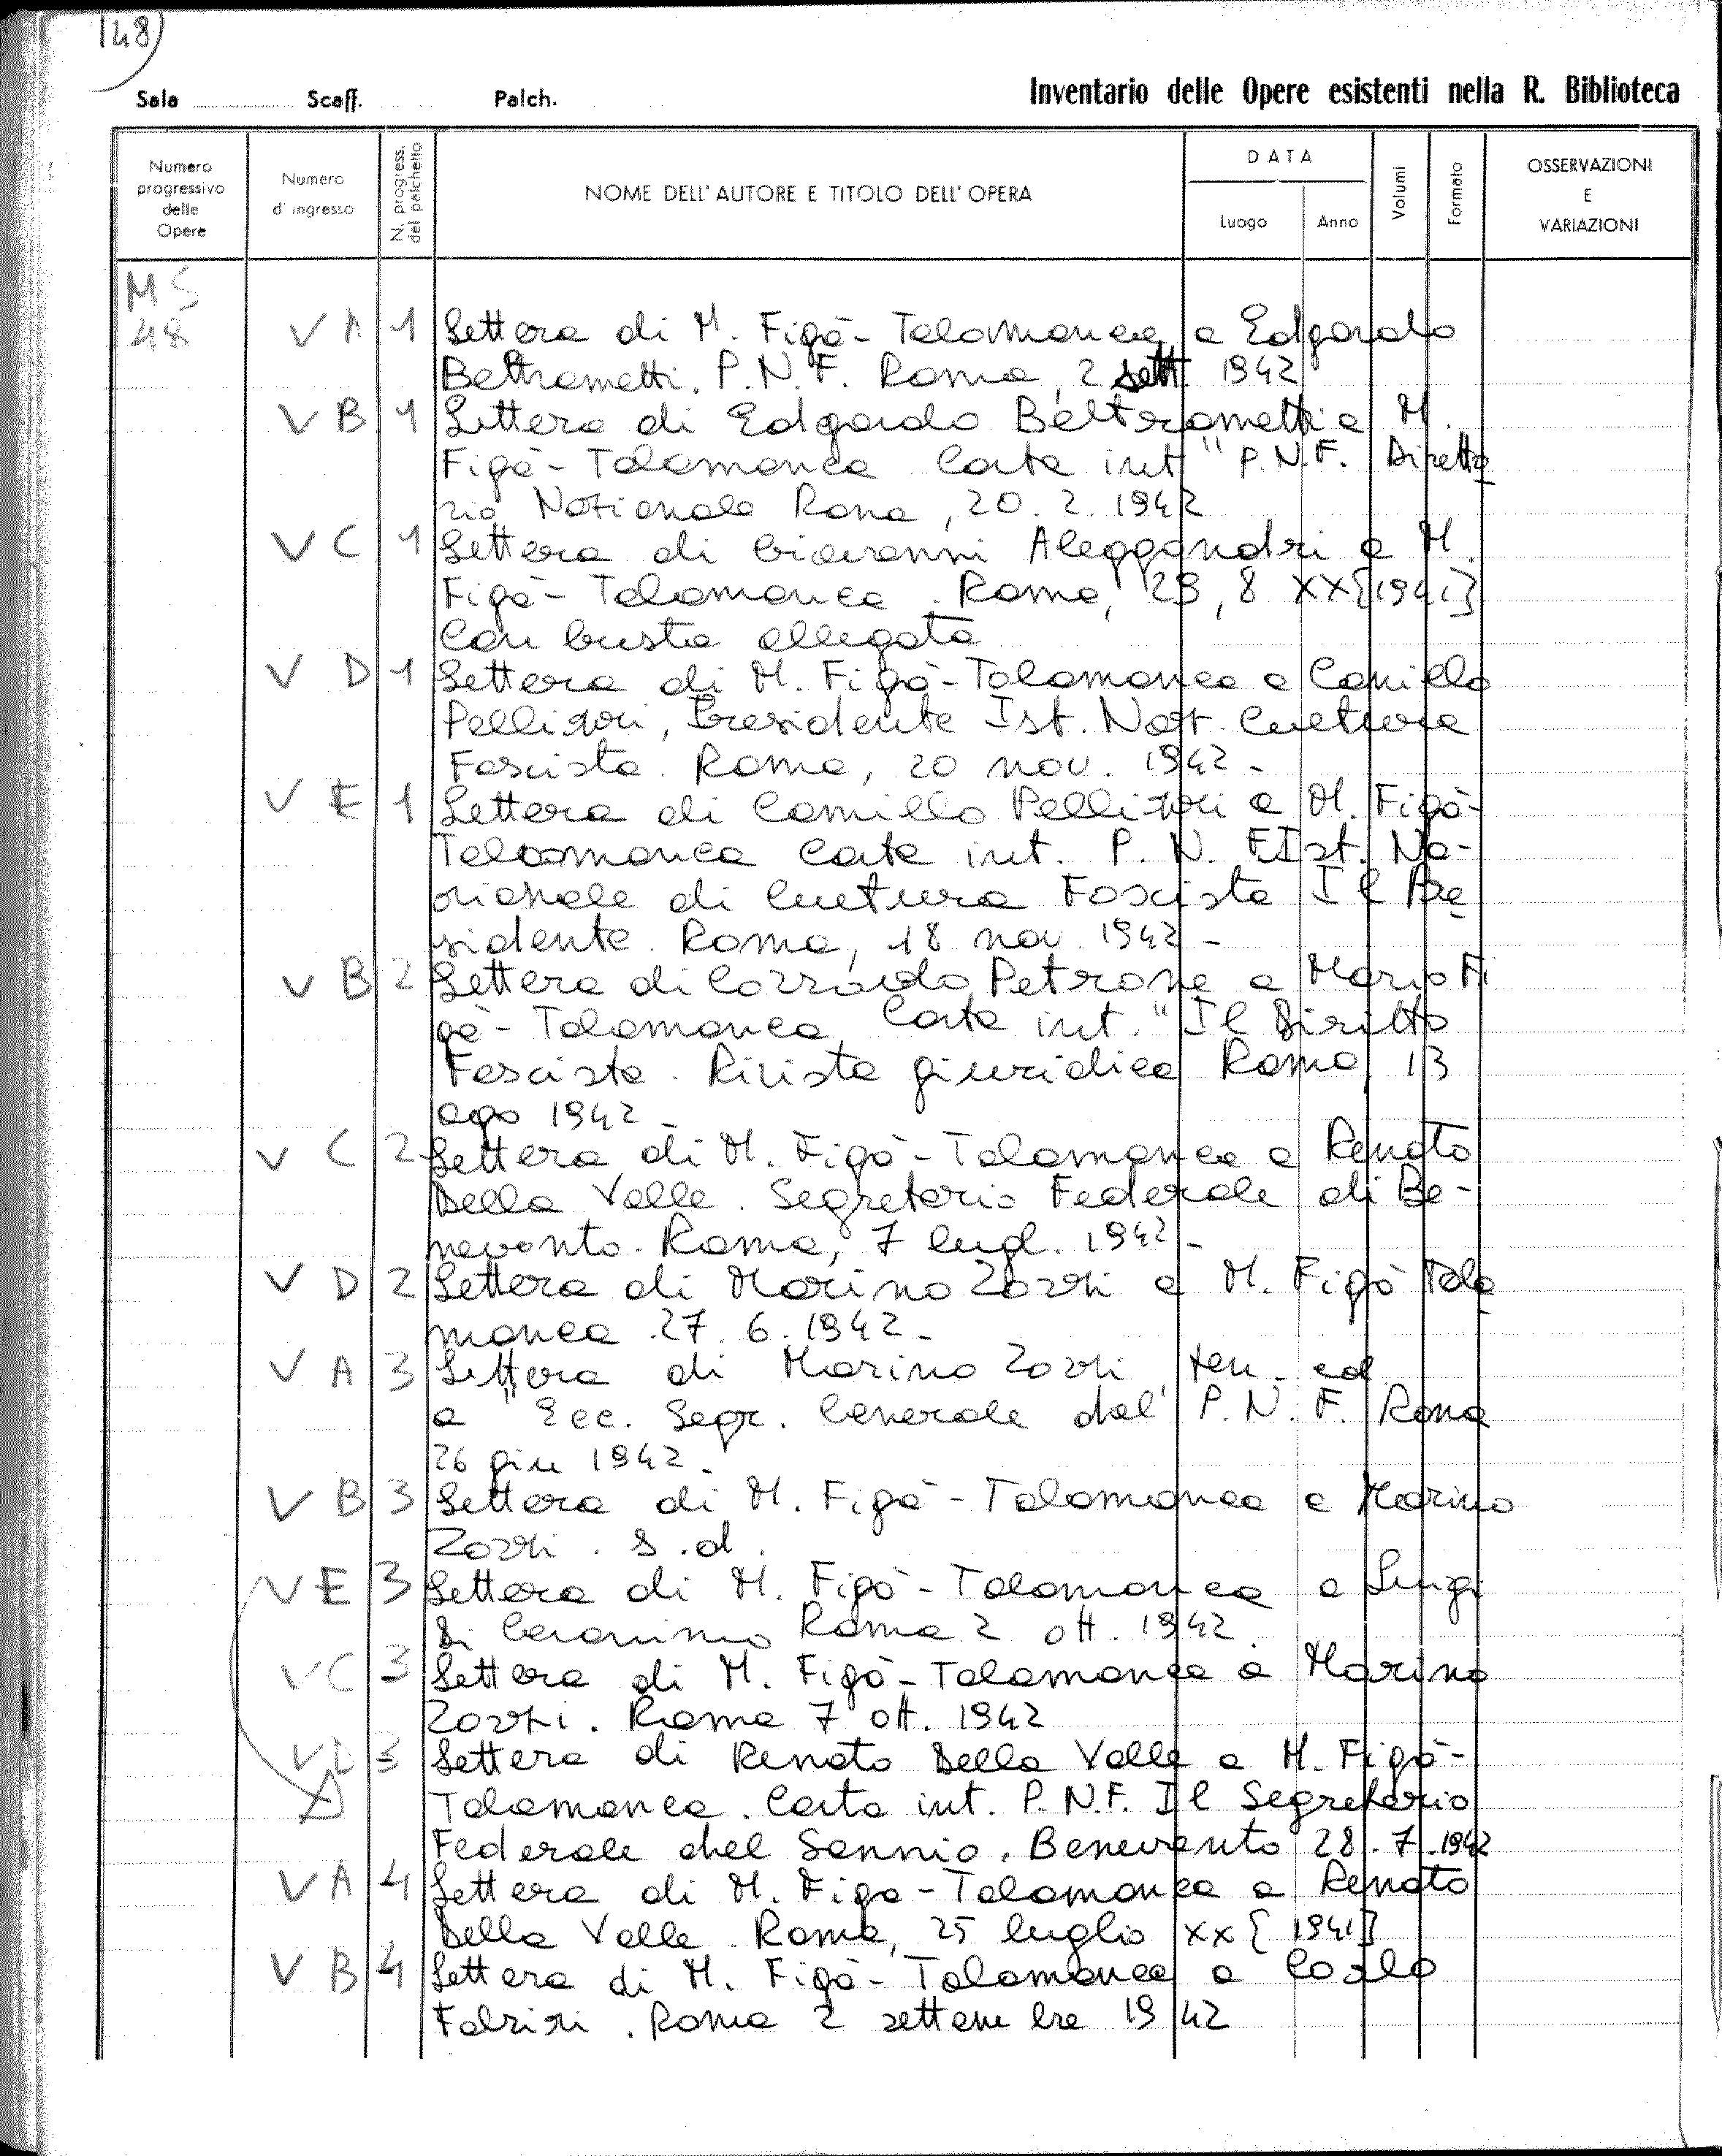 148)
Sala Scaff. Palch. Inventario delle Opere esistenti nella R. Biblioteca
Numero progressivo delle Opere
Numero d'ingresso
N. progress. del palchetto
NOME DELL'AUTORE E TITOLO DELL'OPERA
DATA
Luogo
Anno
Volumi
Formato
OSSERVAZIONI E VARIAZIONI
MS
48 V A 1 Lettera di M. Figà-Talamanca a Edgardo
Beltrametti. P.N.F. Roma, 2 sett 1942
V B 1 Lettera di Edgardo Beltrametti a M.
Figà-Talamanca Carta int "P.N.F. Diretto
rio Nazionale Roma, 20. 2. 1942
V C 1 Lettera di Giovanni Aleggandri a M.
Figà-Talamanca. Roma, 29, 8 XX[1941]
Con busta allegata
V D 1 Lettera di M. Figà-Talamanca a Camillo
Pellizzi, Presidente Ist. Naz. Cultura
Fascista. Roma, 20 nov. 1942-
V E 1 Lettera di Camillo Pellizzi a M. Figà-
Talamanca Carta int. P. N. F Ist. Na-
zionale di Cultura Fascista Il Pre
sidente. Roma, 18 nov. 1942-
V B 2 Lettera di Corrado Petrone a Mario Fi
gà-Talamanca Carta int. "Il Diritto
Fascista. Rivista giuridica Roma, 13
ago 1942-
V C 2 Lettera di M. Figà-Talamanca a Renato
Della Valle. Segretario Federale di Be-
nevento. Roma, 7 lugl. 1942-
V D 2 Lettera di Marino Zozzi a M. Figà Tala
manca. 27. 6. 1942-
V A 3 Lettera di Marino Zozzi ten. col
a "Ecc. Segr. Generale del P. N. F. Roma
26 giu 1942-
V B 3 Lettera di M. Figà-Talamanca a Marino
Zozzi. s.d.
V E 3 Lettera di M. Figà-Talamanca a Luigi
Di Geronimo Roma 2 ott. 1942.
V C 3 Lettera di M. Figà-Talamanca a Marino
Zozzi. Roma 7 ott. 1942
V D 3 Lettera di Renato Della Valle a M. Figà-
Talamanca. Carta int. P.N.F. Il Segretario
Federale del Sannio. Benevento 28.7.1942
V A 4 Lettera di M. Figa-Talamanca a Renato
Della Valle. Roma, 25 luglio XX [1941]
V B 4 Lettera di M. Figà-Talamanca a Carlo
Fabrizi. Roma 2 settembre 1942